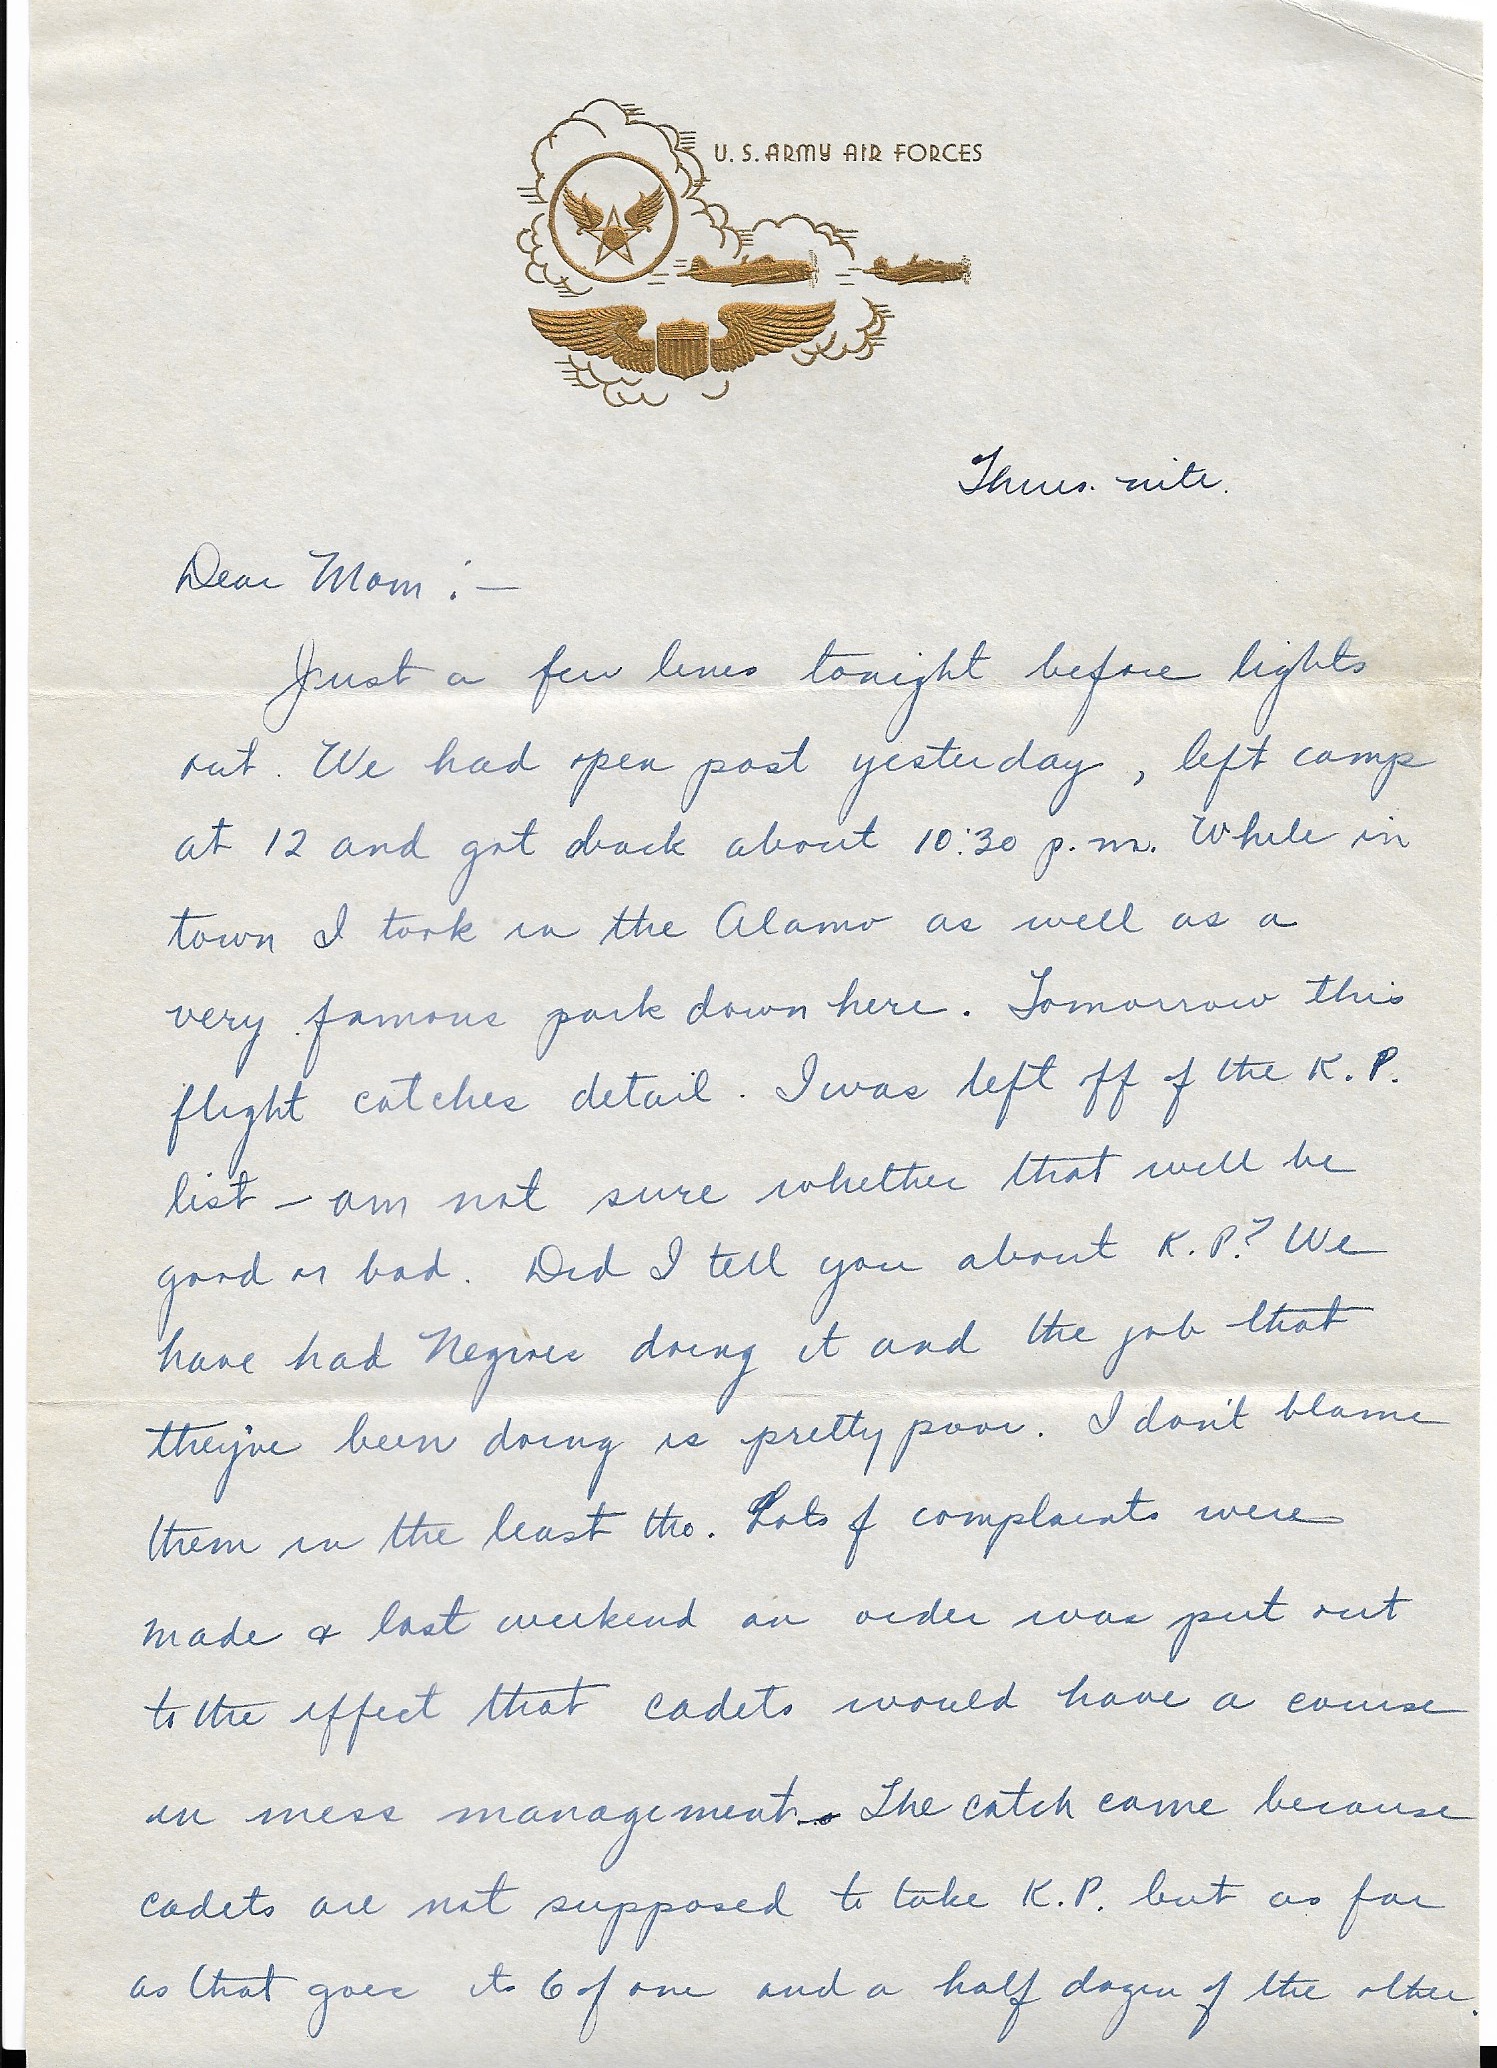 U. S. ARMY AIR FORCES
Thurs. nite.
Dear Mom :—
Just a few lines tonight before lights
out. We had open post yesterday, left camp
at 12 and got back about 10:30 p.m. While in
town I took in the Alamo as well as a
very famous park down here. Tomorrow this
flight catches detail. I was left off of the K.P.
list — am not sure whether that will be
good or bad. Did I tell you about K.P.? We
have had Negroes doing it and the job that
they've been doing is pretty poor. I don't blame
them in the least tho. Lots of complaints were
made & last weekend an order was put out
to the effect that cadets would have a course
in mess management. The catch came because
cadets are not supposed to take K.P. but as far
as that goes its 6 of one and a half dozen of the other.